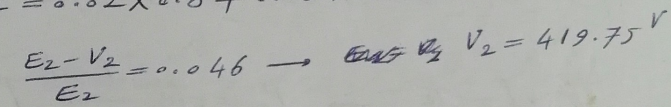 = 0.02 x
(E₂ - V₂) / E₂ = 0.046 → V₂ = 419.75 V